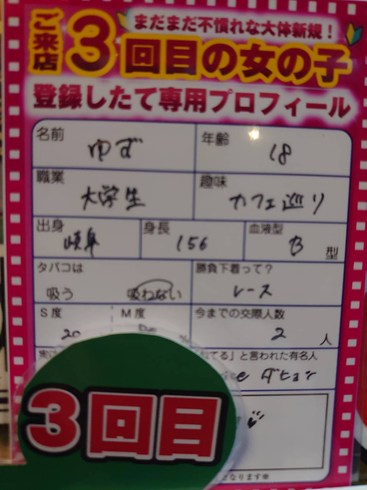 まだまだ不慣れな大体新規！
ご来店3回目の女の子
登録したて専用プロフィール
名前 ゆず 年齢 18
職業 大学生 趣味 カフェ巡り
出身 岐阜 身長 156 血液型 B 型
タバコは 勝負下着って？
吸う 吸わない レース
S度 M度 今までの交際人数
20 2 人
」と言われた有名人
3回目
となります※